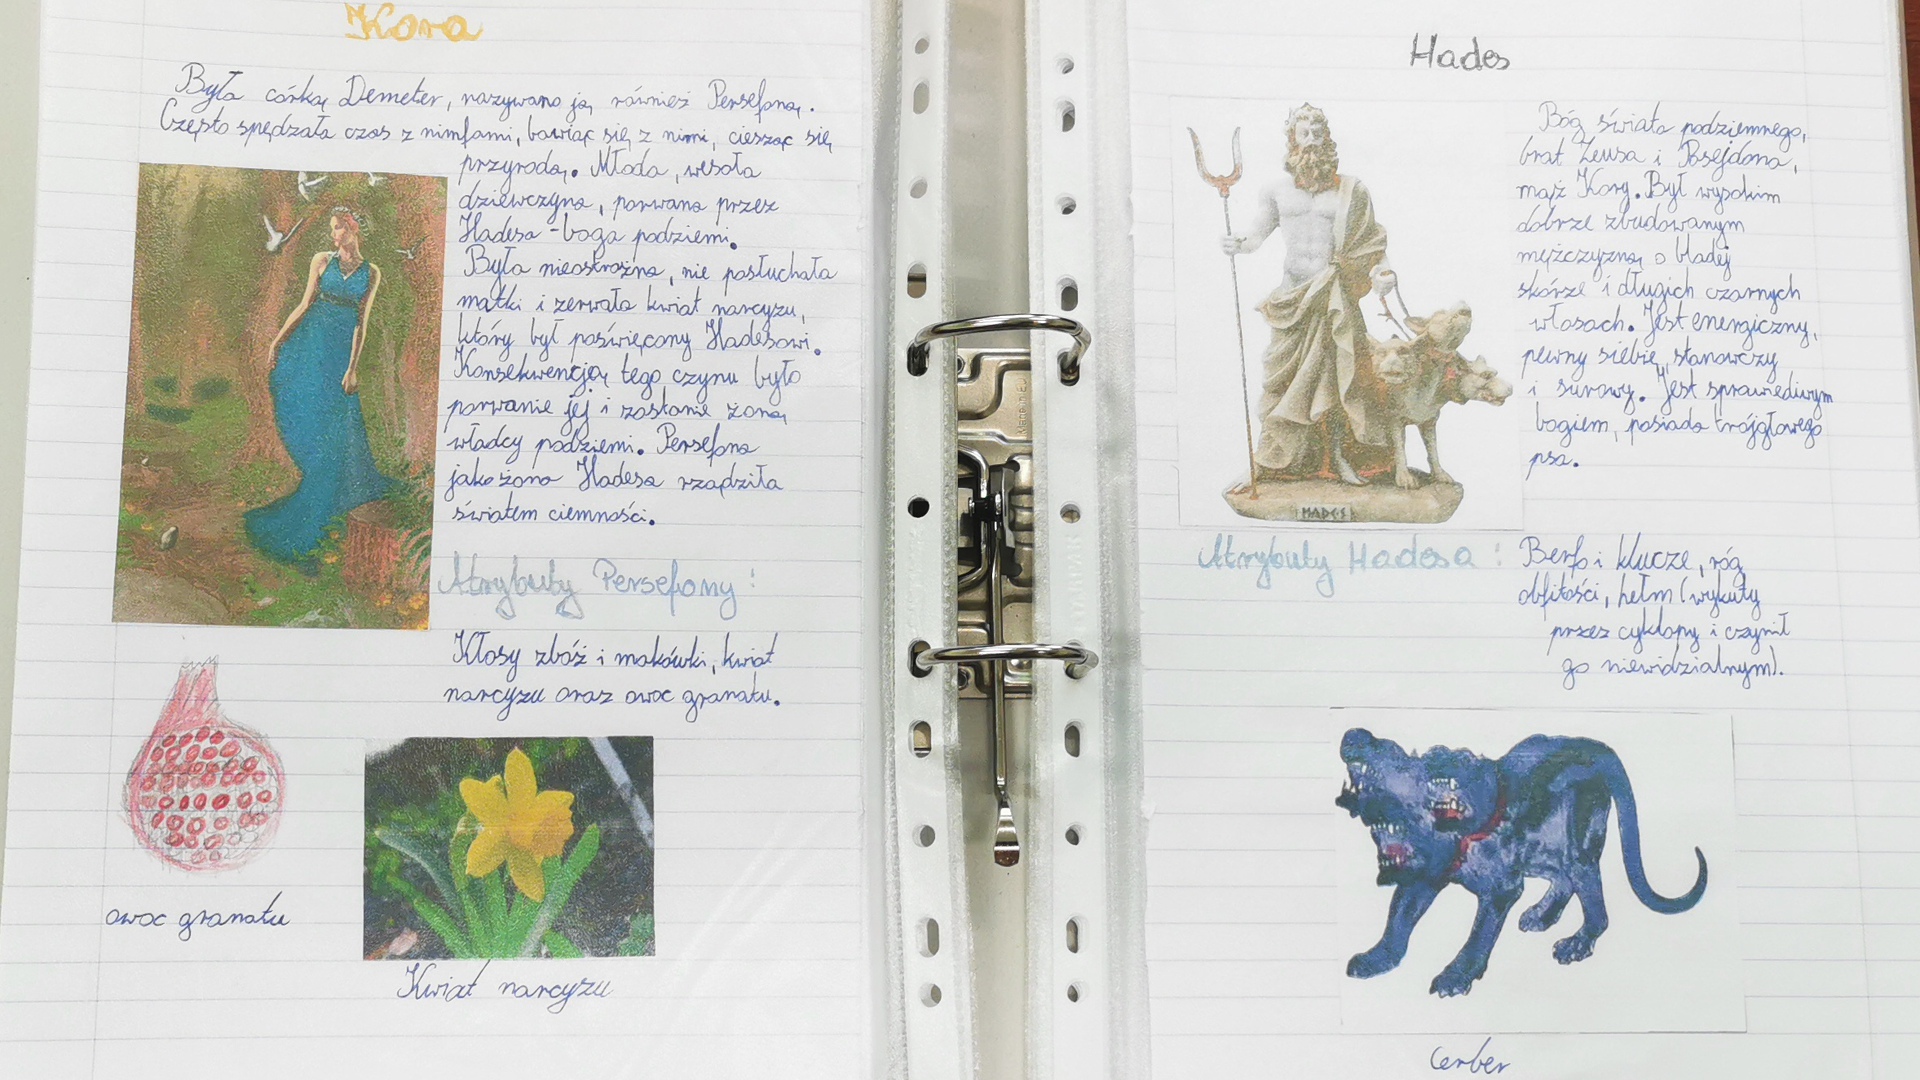 Kora
Była córką Demeter, nazywano ją również Persefoną.
Często spędzała czas z nimfami, bawiąc się z nimi, ciesząc się
przyrodą. Młoda, wesoła
dziewczyna, porwana przez
Hadesa - boga podziemi.
Była nieostrożna, nie posłuchała
matki i zerwała kwiat narcyzu,
który był poświęcony Hadesowi.
Konsekwencją tego czynu było
porwanie jej i zostanie żoną
władcy podziemi. Persefona
jako żona Hadesa rządziła
światem ciemności.
Atrybuty Persefony:
Kłosy zbóż i makówki, kwiat
narcyzu oraz owoc granatu.
owoc granatu
Kwiat narcyzu
Hades
Bóg świata podziemnego,
brat Zeusa i Posejdona,
mąż Kory. Był wysokim
dobrze zbudowanym
mężczyzną o bladej
skórze i długich czarnych
włosach. Jest energiczny,
pewny siebie, stanowczy
i surowy. Jest sprawiedliwym
bogiem, posiada trójgłowego
psa.
HADES
Atrybuty Hadesa:
Berło i klucze, róg
obfitości, hełm (wykuty
przez cyklopy i czynił
go niewidzialnym).
Cerber